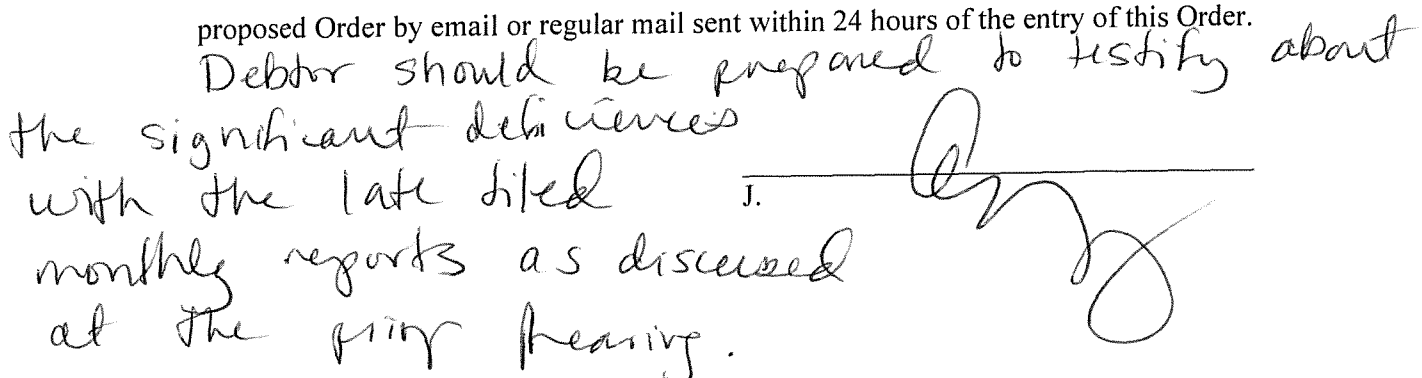 proposed Order by email or regular mail sent within 24 hours of the entry of this Order.
Debtor should be prepared to testify about
the significant deficiences
with the late filed
J.
monthly reports as discussed
at the prior hearing.